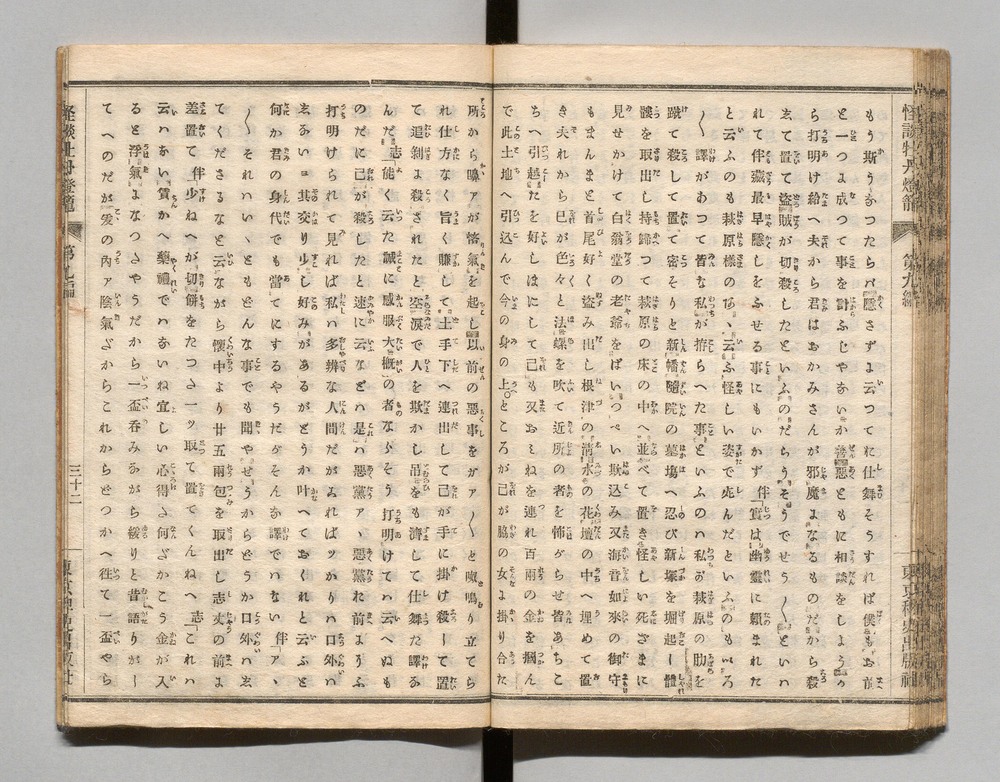 怪談牡丹燈籠
第九編
東京稗史出版社
もう斯うなつたらバ隠さずよ云つて仕舞そうすれば僕もお前
と一つよ成つて事を計ふじやないか善悪ともに相談をしようか
ら打明け給へ夫から君はおかみさんが邪魔よなるものだから殺
ゑて置て盗賊が切殺したといふのだらうそうでせう〳〵といハ
れて伴蔵最早隠しをふせる事にもいかず伴「實は幽靈に頼まれた
と云ふのも萩原様のアヽ云ふ怪しい姿で死んだといふのもいろ
〳〵譯があつて皆な私が拵らへた事といふのハ私が萩原の肋を
蹴て殺して置て密そりと新幡隨院の墓塲へ忍び新塚を堀起し體
髏を取出し持歸つて萩原の床の中へ並べて置き怪しい死ざまに
見せかけて白翁堂の老爺をばいつぺい欺込み又海音如來の御守
もまんまと首尾好く盗み出し根津の清水の花壇の中へ埋めて置
き夫れから己が色々と法螺を吹て近所の者を怖がらせ皆あちこ
ちへ引越たを好しほにして己も又おミねを連れ百兩の金を摑ん
で此土地へ引込んで今の身の上。ところが己が脇の女よ掛り合た
所から嚊アが悋氣を起し以前の悪事をガア〳〵と呶鳴り立てら
れ仕方なく旨く賺して土手下へ連出して己が手に掛け殺して置
て追剝よ殺されたと空涙で人を欺かし吊をも濟して仕舞た譯る
んだ志「能く云た誠に感服大概の者ならそう打明けてハ云へぬも
のだに己が殺したと速に云などハ是ハ悪黨アヽ悪黨お前よ
打明けられて見れば私ハ多辨な人間だがゑればツかりハ口外ハ
ゑないヨ其交り少し好みがあるがどうか叶へておくれと云ふと
何か君の身代でも當てにするやうだがそんな譯でハない伴「アヽ
〳〵それハいゝともどんな事でも聞やせうからどうか口外ハゑ
てくださるなと云ながら懷中より廿五兩包みを取出し志丈の前よ
差置て伴少ねへが切餅をたつた一ツ取て置てくんねへ志「これハ
云ハない賃かへ藥禮でハないね宜しい心得た何ざかこう金が入
ると浮氣よなつたやうだから一盃呑みながら緩りと昔語りがし
てへのだが爰の内ア陰氣ざからこれからどつかへ徃て一盃やら
怪談牡丹燈籠
第九編
三十二
東京稗史出版社